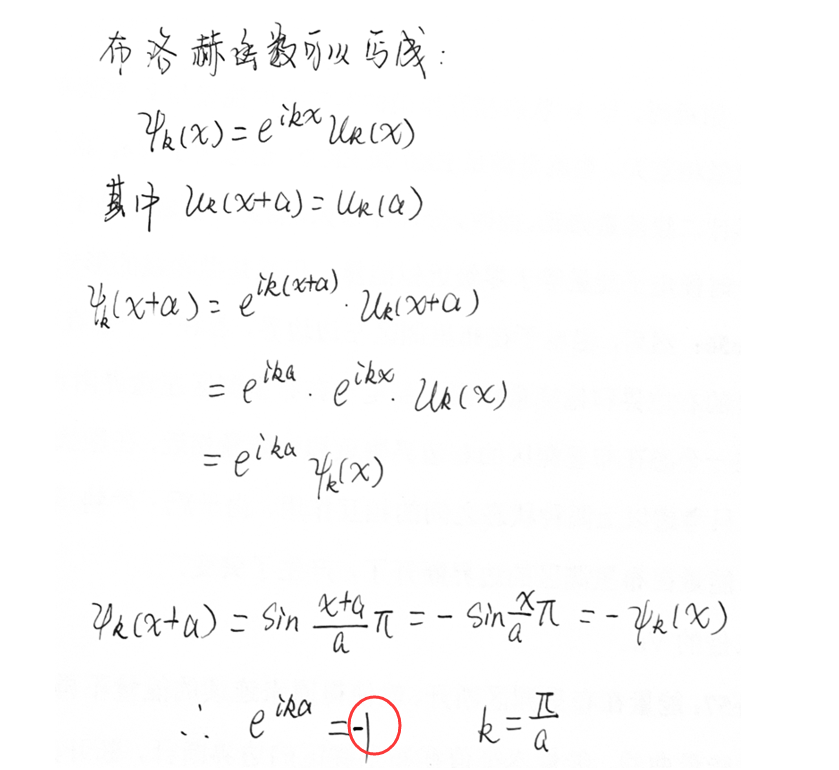 布洛赫函数可以写成：
ψₖ(x) = e^{ikx} uₖ(x)
其中 uₖ(x+a) = uₖ(a)
ψₖ(x+a) = e^{ik(x+a)} · uₖ(x+a)
= e^{ika} · e^{ikx} · uₖ(x)
= e^{ika} ψₖ(x)
ψₖ(x+a) = sin \frac{x+a}{a} π = - sin \frac{x}{a} π = - ψₖ(x)
∴ e^{ika} = -1 k = \frac{π}{a}